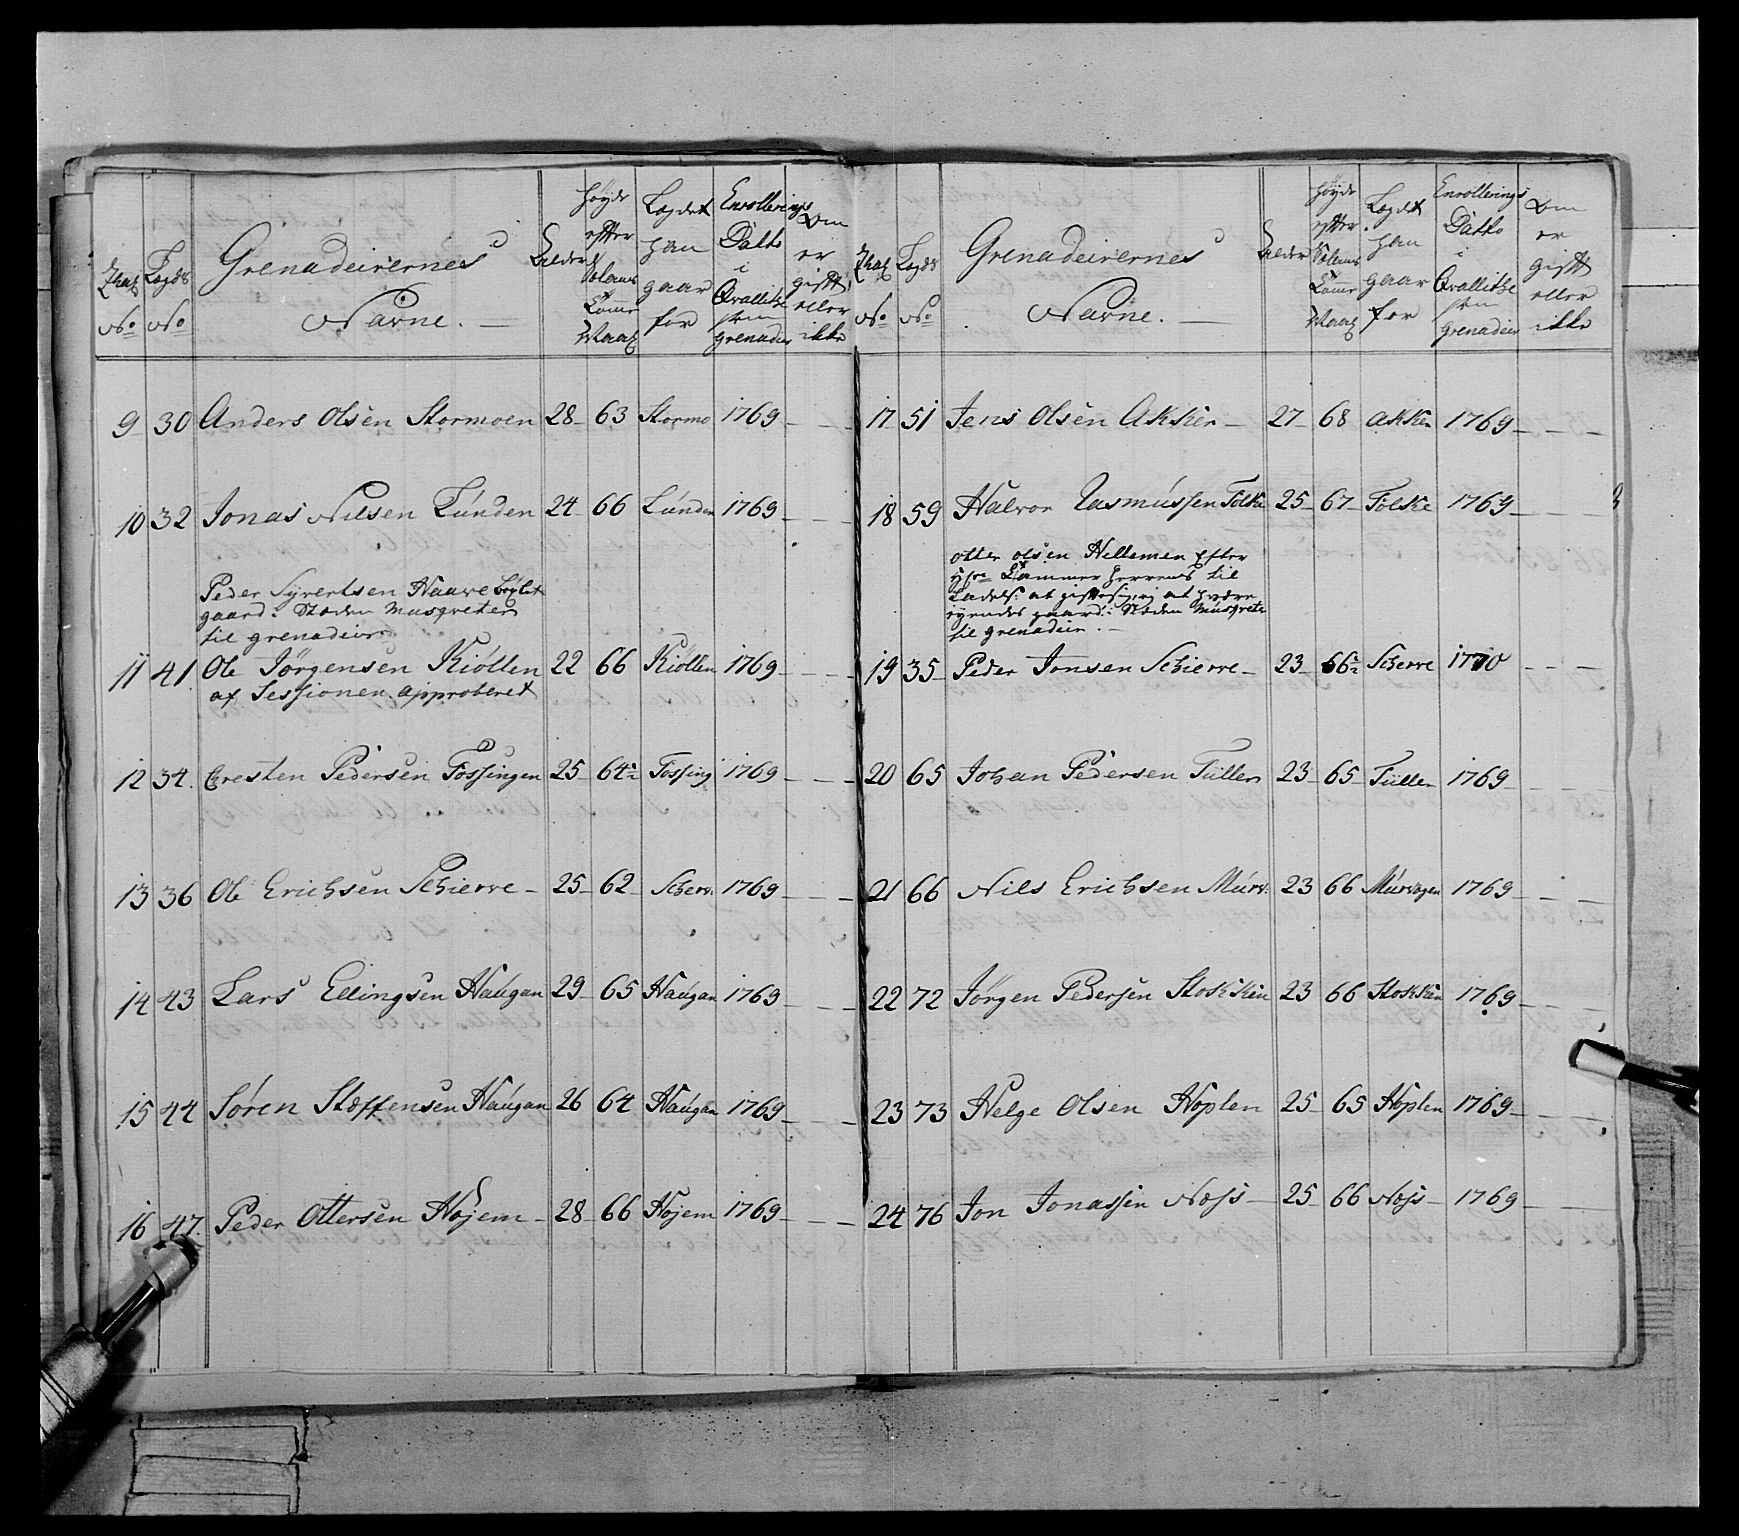 Lægds No Grenadeirernes Navne. Alder Høyde efter Tolama Tomme Maal Lægdet han gaar for Enrollerings Datto i Qvallitse som grenadier Om er gift eller ikke
9 30 Anders Olsen Stormoen 28 63 Stormo 1769
10 32 Jonas Nilsen Lunden 24 66 Lunden 1769
Peder Syvertsen Hauve
gaard: Stæden Musqveteer
til grenadeir
11 41 Ole Jörgensen Kiölten 22 66 Kiölten 1769
af Sessionen approberet
12 34 Cresten Pedersen Fossingen 25 64½ Fossing 1769
13 36 Ole Erichsen Schierve 25 62 Scherv. 1769
14 43 Lars Ellingsen Haugan 29 65 Haugan 1769
15 44 Sören Stæffensen Haugan 26 64 Haugan 1769
16 47 Peder Ottersen Höjem 28 66 Höjem 1769
Lægds No Grenadeirernes Navne. Alder Høyde efter Tolama Tomme Maal Lægdet han gaar for Enrollerings Datto i Qvallitse som grenadeir Om er gift eller ikke
17 51 Jens Olsen Akker 27 68 Akker 1769
18 59 Halvor Rasmussen Folke 25 67 Folke 1769
Otter Olsen Hellemen Efter
Hr Cammer Herrens til
Ladelse at gifte sig, at
gaard: Stæden Musqveter
til grenadeir.
19 35 Peder Jonsen Schierve 23 66½ Scherve 1770
20 65 Johan Pedersen Tüller 23 65 Tüller 1769
21 66 Nils Erichsen Murv: 23 66 Murvogen 1769
22 72 Jörgen Pedersen Stokken 23 66 Stokken 1769
23 73 Helge Olsen Hoplen 25 65 Hoplen 1769
24 76 Jon Jonassen Næss 25 66 Næss 1769